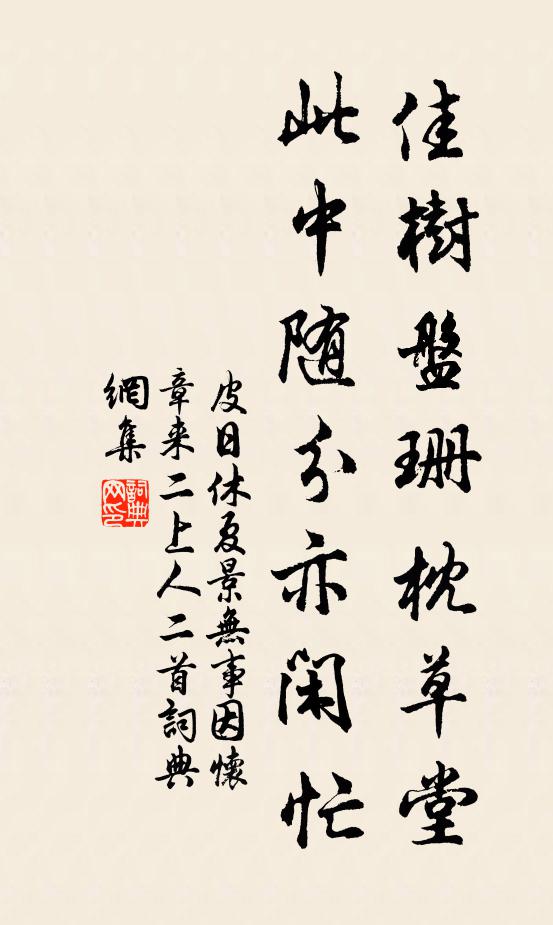 佳樹盤珊枕草堂
此中随分亦閑忙
皮日休夏景無事因懷
章来二上人二首詞典
網集
詞典
网印